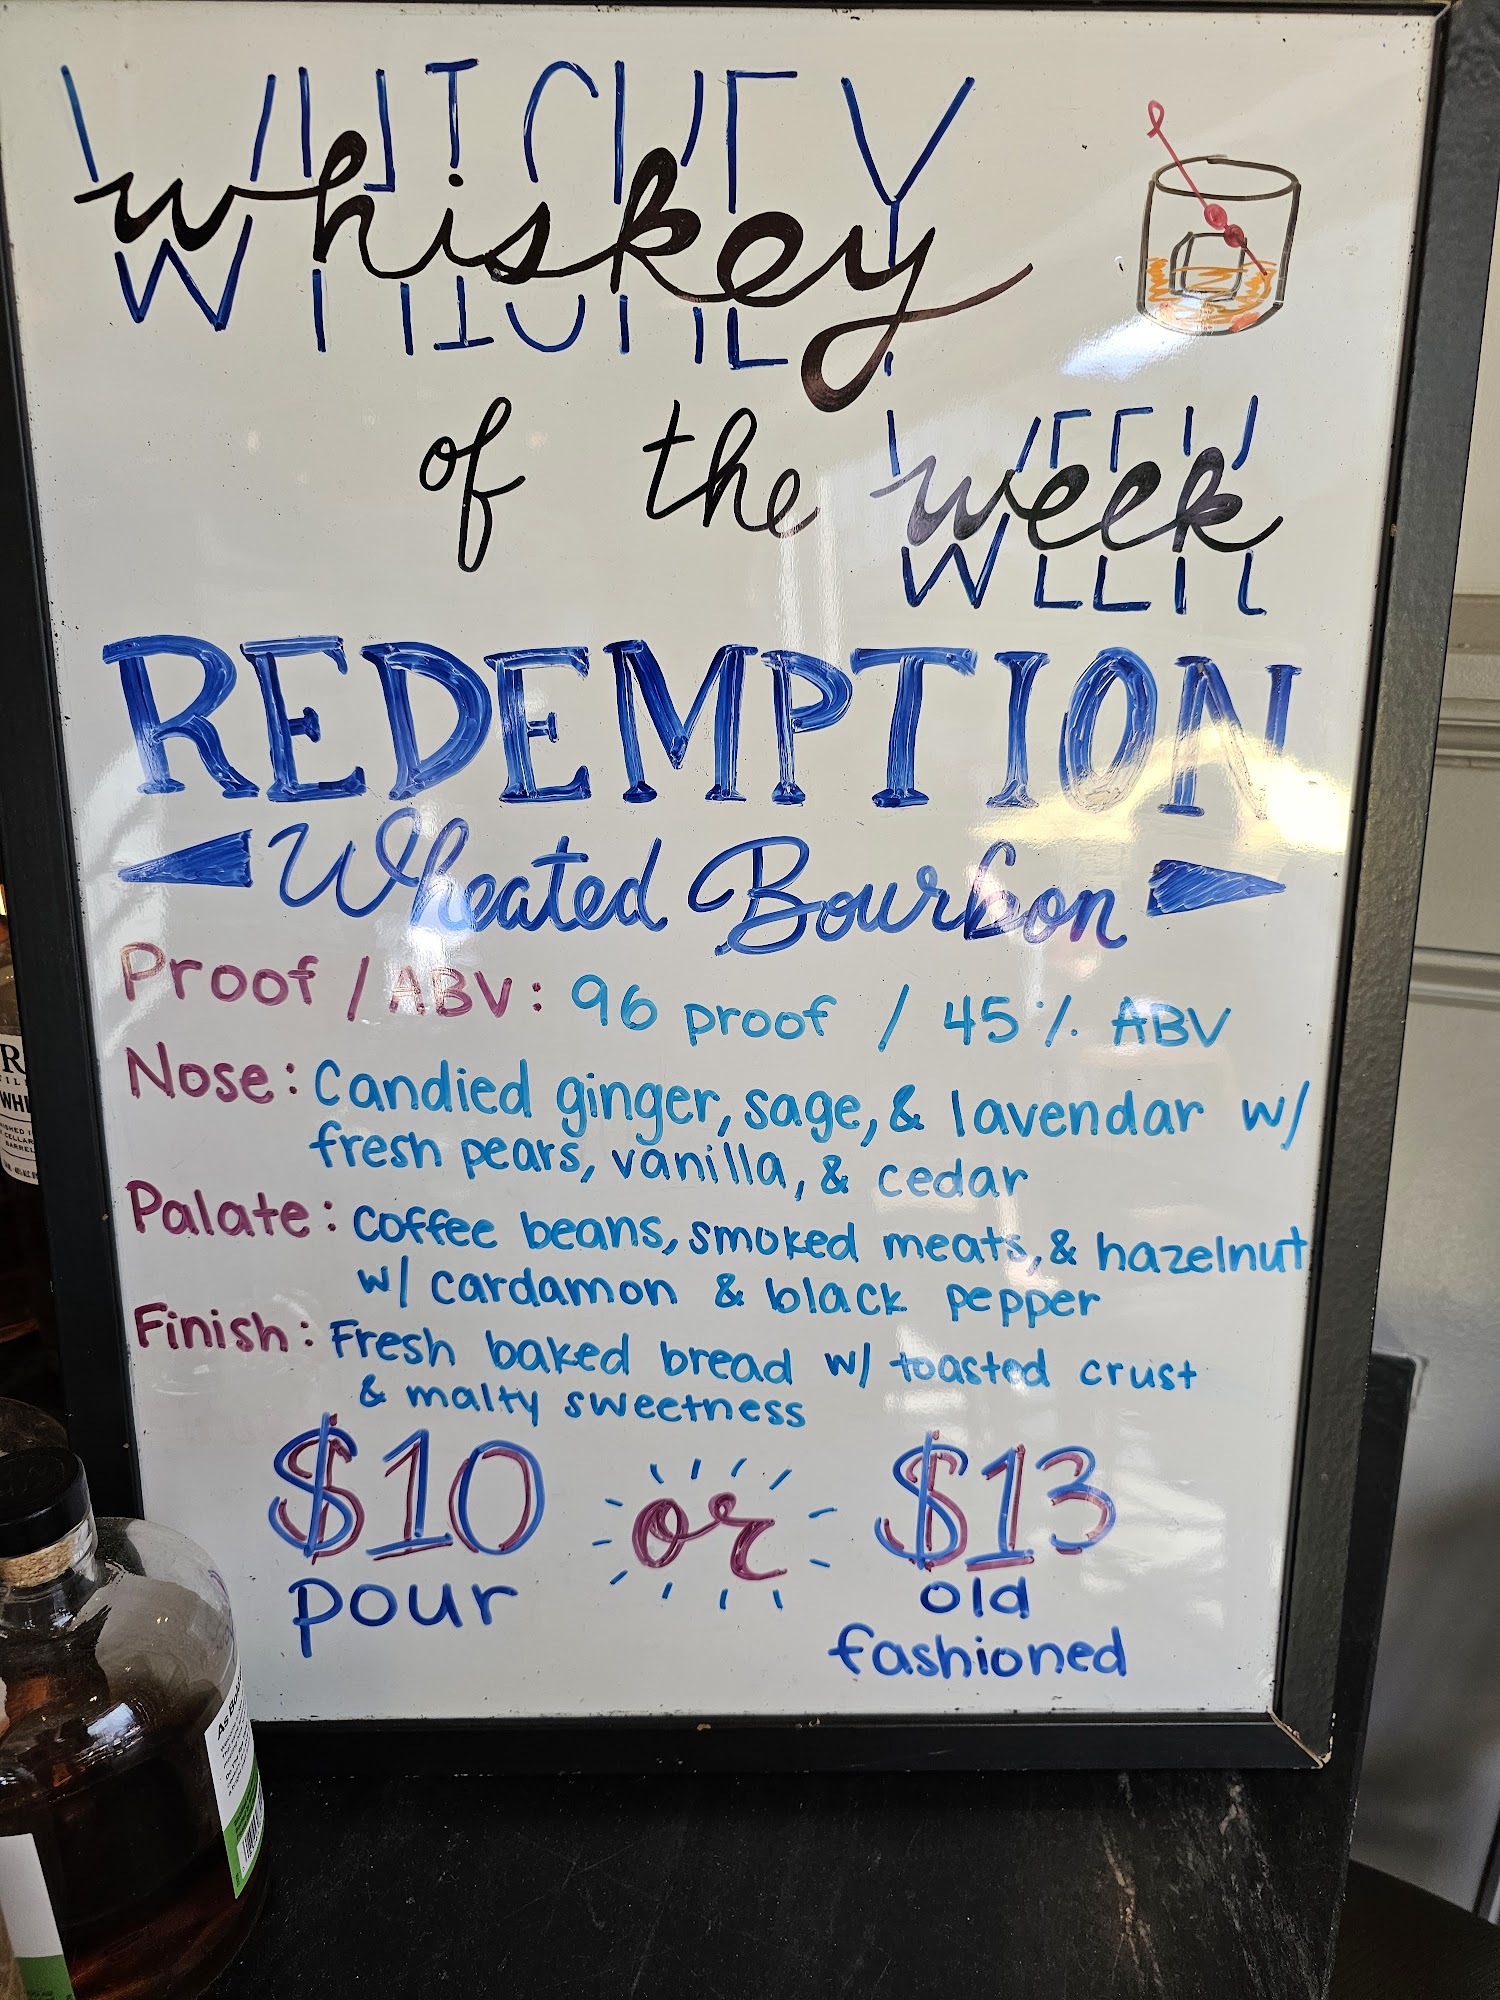 whiskey
of the week
REDEMPTION
Wheated Bourbon
Proof / ABV: 96 proof / 45% ABV
Nose: Candied ginger, sage, & lavendar w/
fresh pears, vanilla, & cedar
Palate: coffee beans, smoked meats, & hazelnut
w/ cardamon & black pepper
Finish: Fresh baked bread w/ toasted crust
& malty sweetness
$10 or $13
pour old
fashioned